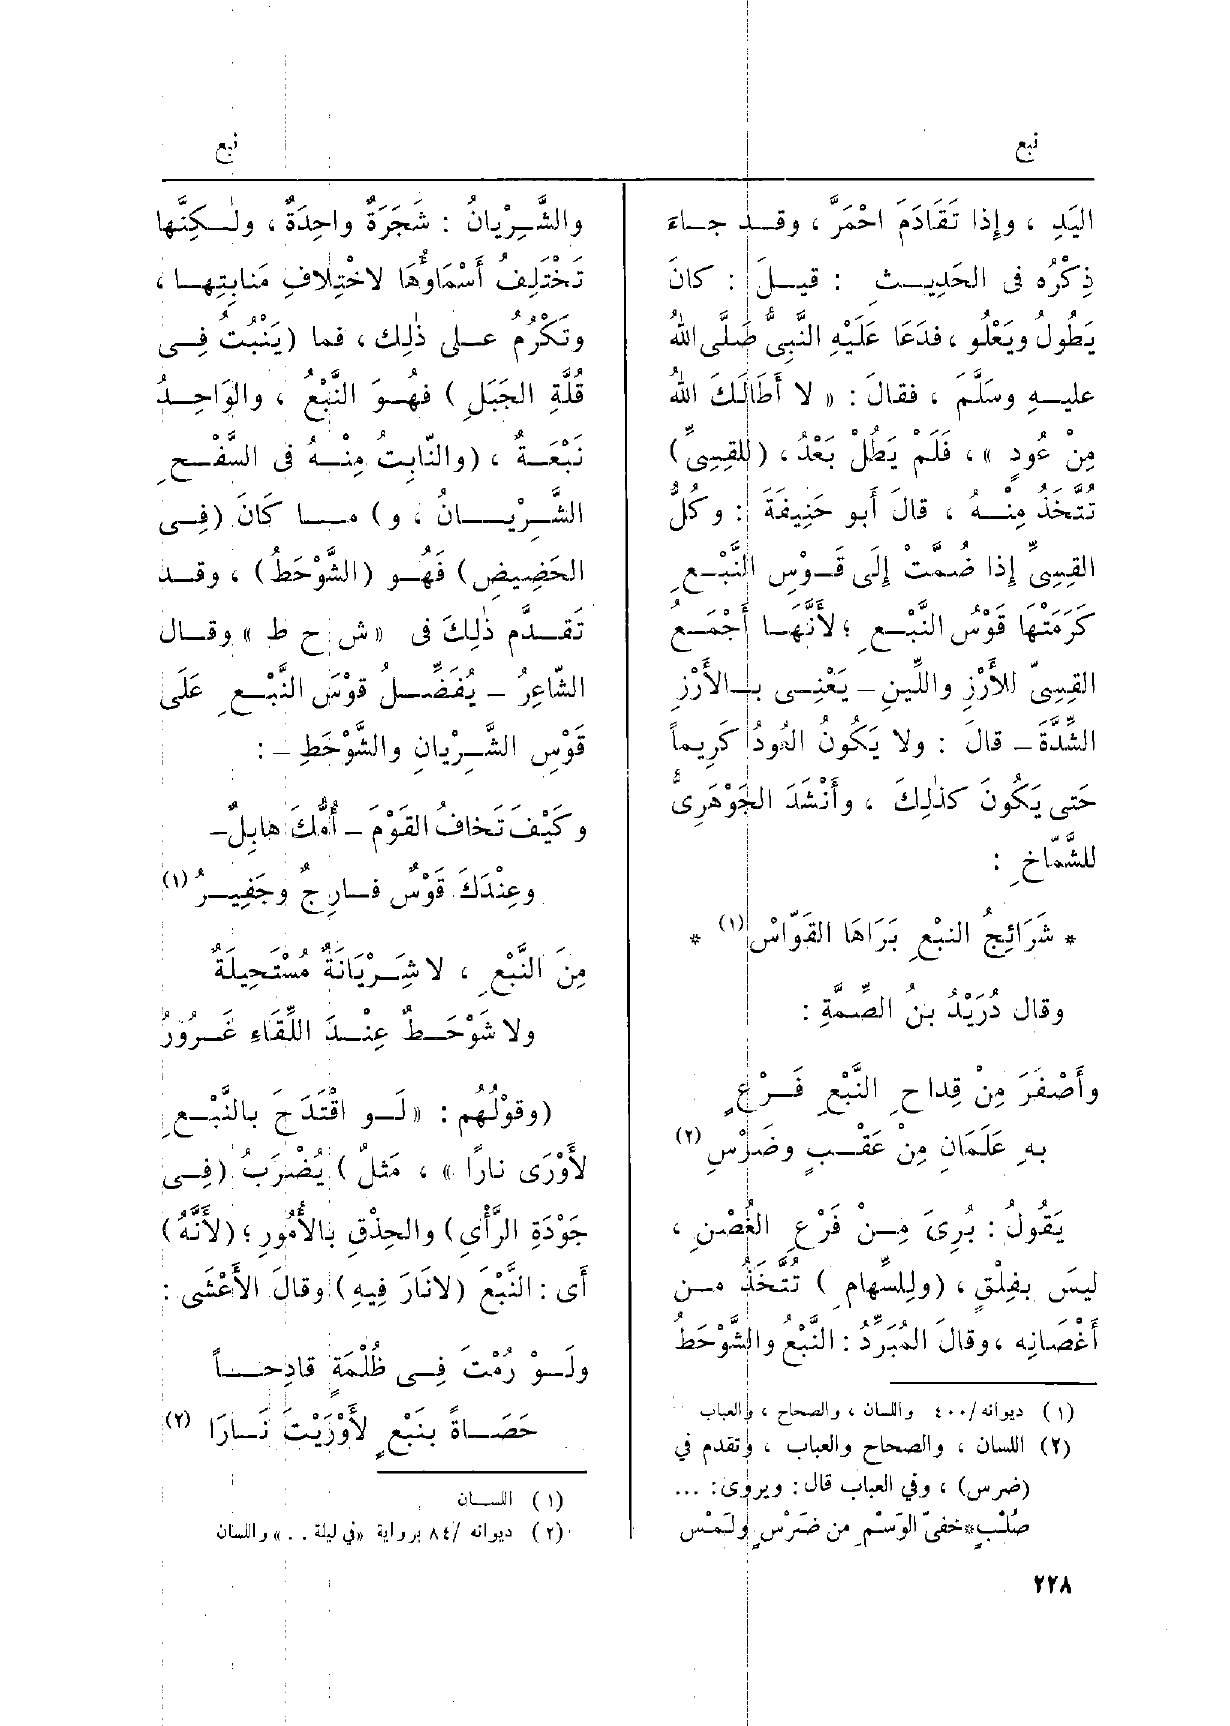 نبع
نبع
اليَدِ ، وإذا تَقَادَمَ احْمَرَّ ، وقــد جــاءَ
ذِكْرُه فى الحَدِيــثِ : قيــلَ : كانَ
يَطولُ ويَعْلُو ، فدَعَا عَلَيْهِ النَّبِىُّ صَلَّى اللهُ
عليــهِ وسَلَّمَ ، فقالَ : « لا أَطَالَكَ اللهُ
مِنْ عُودٍ » ، فَلَمْ يَطُلْ بَعْدُ ، (للقِسِىِّ)
تُتَّخَذُ مِنْــهُ ، قالَ أَبو حَنِيفَةَ : وكُلُّ
القِسِىِّ إذا ضُمَّتْ إلَى قَــوْسِ النَّبْــعِ
كَرَمَتْها قَوْسُ النَّبْــعِ ؛ لأَنَّهــا أَجْمَــعُ
القِسِىِّ للأَرْزِ واللِّينِ – يَعْنِــى بــالأَرْزِ
الشِّدَّةَ – قالَ : ولا يَكُونُ العُودُ كَرِيماً
حَتى يَكُونَ كذٰلِكَ ، وأَنْشَدَ الجَوْهَرِىُّ
للشَّمّاخِ :
* شَرَائِجُ النبْعِ بَرَاهَا القَوّاسْ (١) *
وقال دُرَيْدُ بنُ الصِّمَّةِ :
وأَصْفَرَ مِنْ قِداحِ النَّبْعِ فَــرْعٍ
بهِ عَلَمَانِ مِنْ عَقَــبٍ وضَرْسِ (٢)
يَقُولُ : بُرِىَ مِــنْ فَرْعِ الغُصْنِ ،
ليسَ بفِلْقٍ ، (وللسِّهامِ) تُتَّخَذُ مــن
أَغْصَانِه ، وقالَ المُبَرِّدُ : النَّبْعُ والشَّوْحَطُ
(١) ديوانه/٤٠٠ واللسان ، والصحاح ، والعباب
(٢) اللسان ، والصحاح والعباب ، وتقدم في
(ضرس) ، وفي العباب قال : ويروى : ...
صُلْبٍ*خفىّ الوَسْمِ من ضَرْسٍ ولَمْس
والشِّرْيانُ : شَجَرَةٌ واحِدَةٌ ، ولٰــكِنَّها
تَخْتَلِفُ أَسْمَاؤُهَا لاخْتِلافِ مَنابِتِهــا ،
وتَكْرُمُ عــلى ذٰلِك ، فما (يَنْبُتُ فِــى
قُلَّةِ الجَبَلِ) فهُــوَ النَّبْعُ ، والوَاحِــدُ
نَبْعَــةٌ ، (والنّابِتُ مِنْــهُ فى السَّفْــحِ
الشِّرْيــانُ ، و) مــا كَانَ (فِــى
الحَضِيضِ) فَهُــو (الشَّوْحَطُ) ، وقــد
تَقــدَّم ذٰلِكَ فى «ش ح ط » وقــال
الشّاعِرُ – يُفَضِّــلُ قوْسَ النَّبْــعِ عَلَى
قَوْسِ الشِّرْيانِ والشَّوْحَطِ – :
وكَيْفَ تَخافُ القَوْمَ – أُمُّكَ هابِلٌ –
وعِنْدَكَ قَوْسٌ فــارِجٌ وجَفِيــرُ (١)
مِنَ النَّبْعِ ، لا شِــرْيَانَةٌ مُسْتَحِيلَةٌ
ولا شَوْحَــطٌ عِنْــدَ اللِّقَاءِ غَــرُورُ
(وقولُهُم : «لَــو اقْتَدَحَ بالنَّبْــعِ
لأَوْرَى نارًا » ، مَثلٌ) يُضْرَبُ (فِــى
جَوْدَةِ الرَّأْىِ) والحِذْقِ بالأُمُورِ ؛ (لأَنَّهُ)
أَى : النَّبْعَ (لانَارَ فِيهِ) وقالَ الأَعْشَى :
ولَــوْ رُمْتَ فِــى ظُلْمَةٍ قادِحــاً
حَصَــاةً بنَبْعٍ لأَوْرَيْتَ نَــارَا (٢)
(١) اللسان
(٢) ديوانه /٨٤ برواية «في ليلة . .» واللسان
٢٢٨